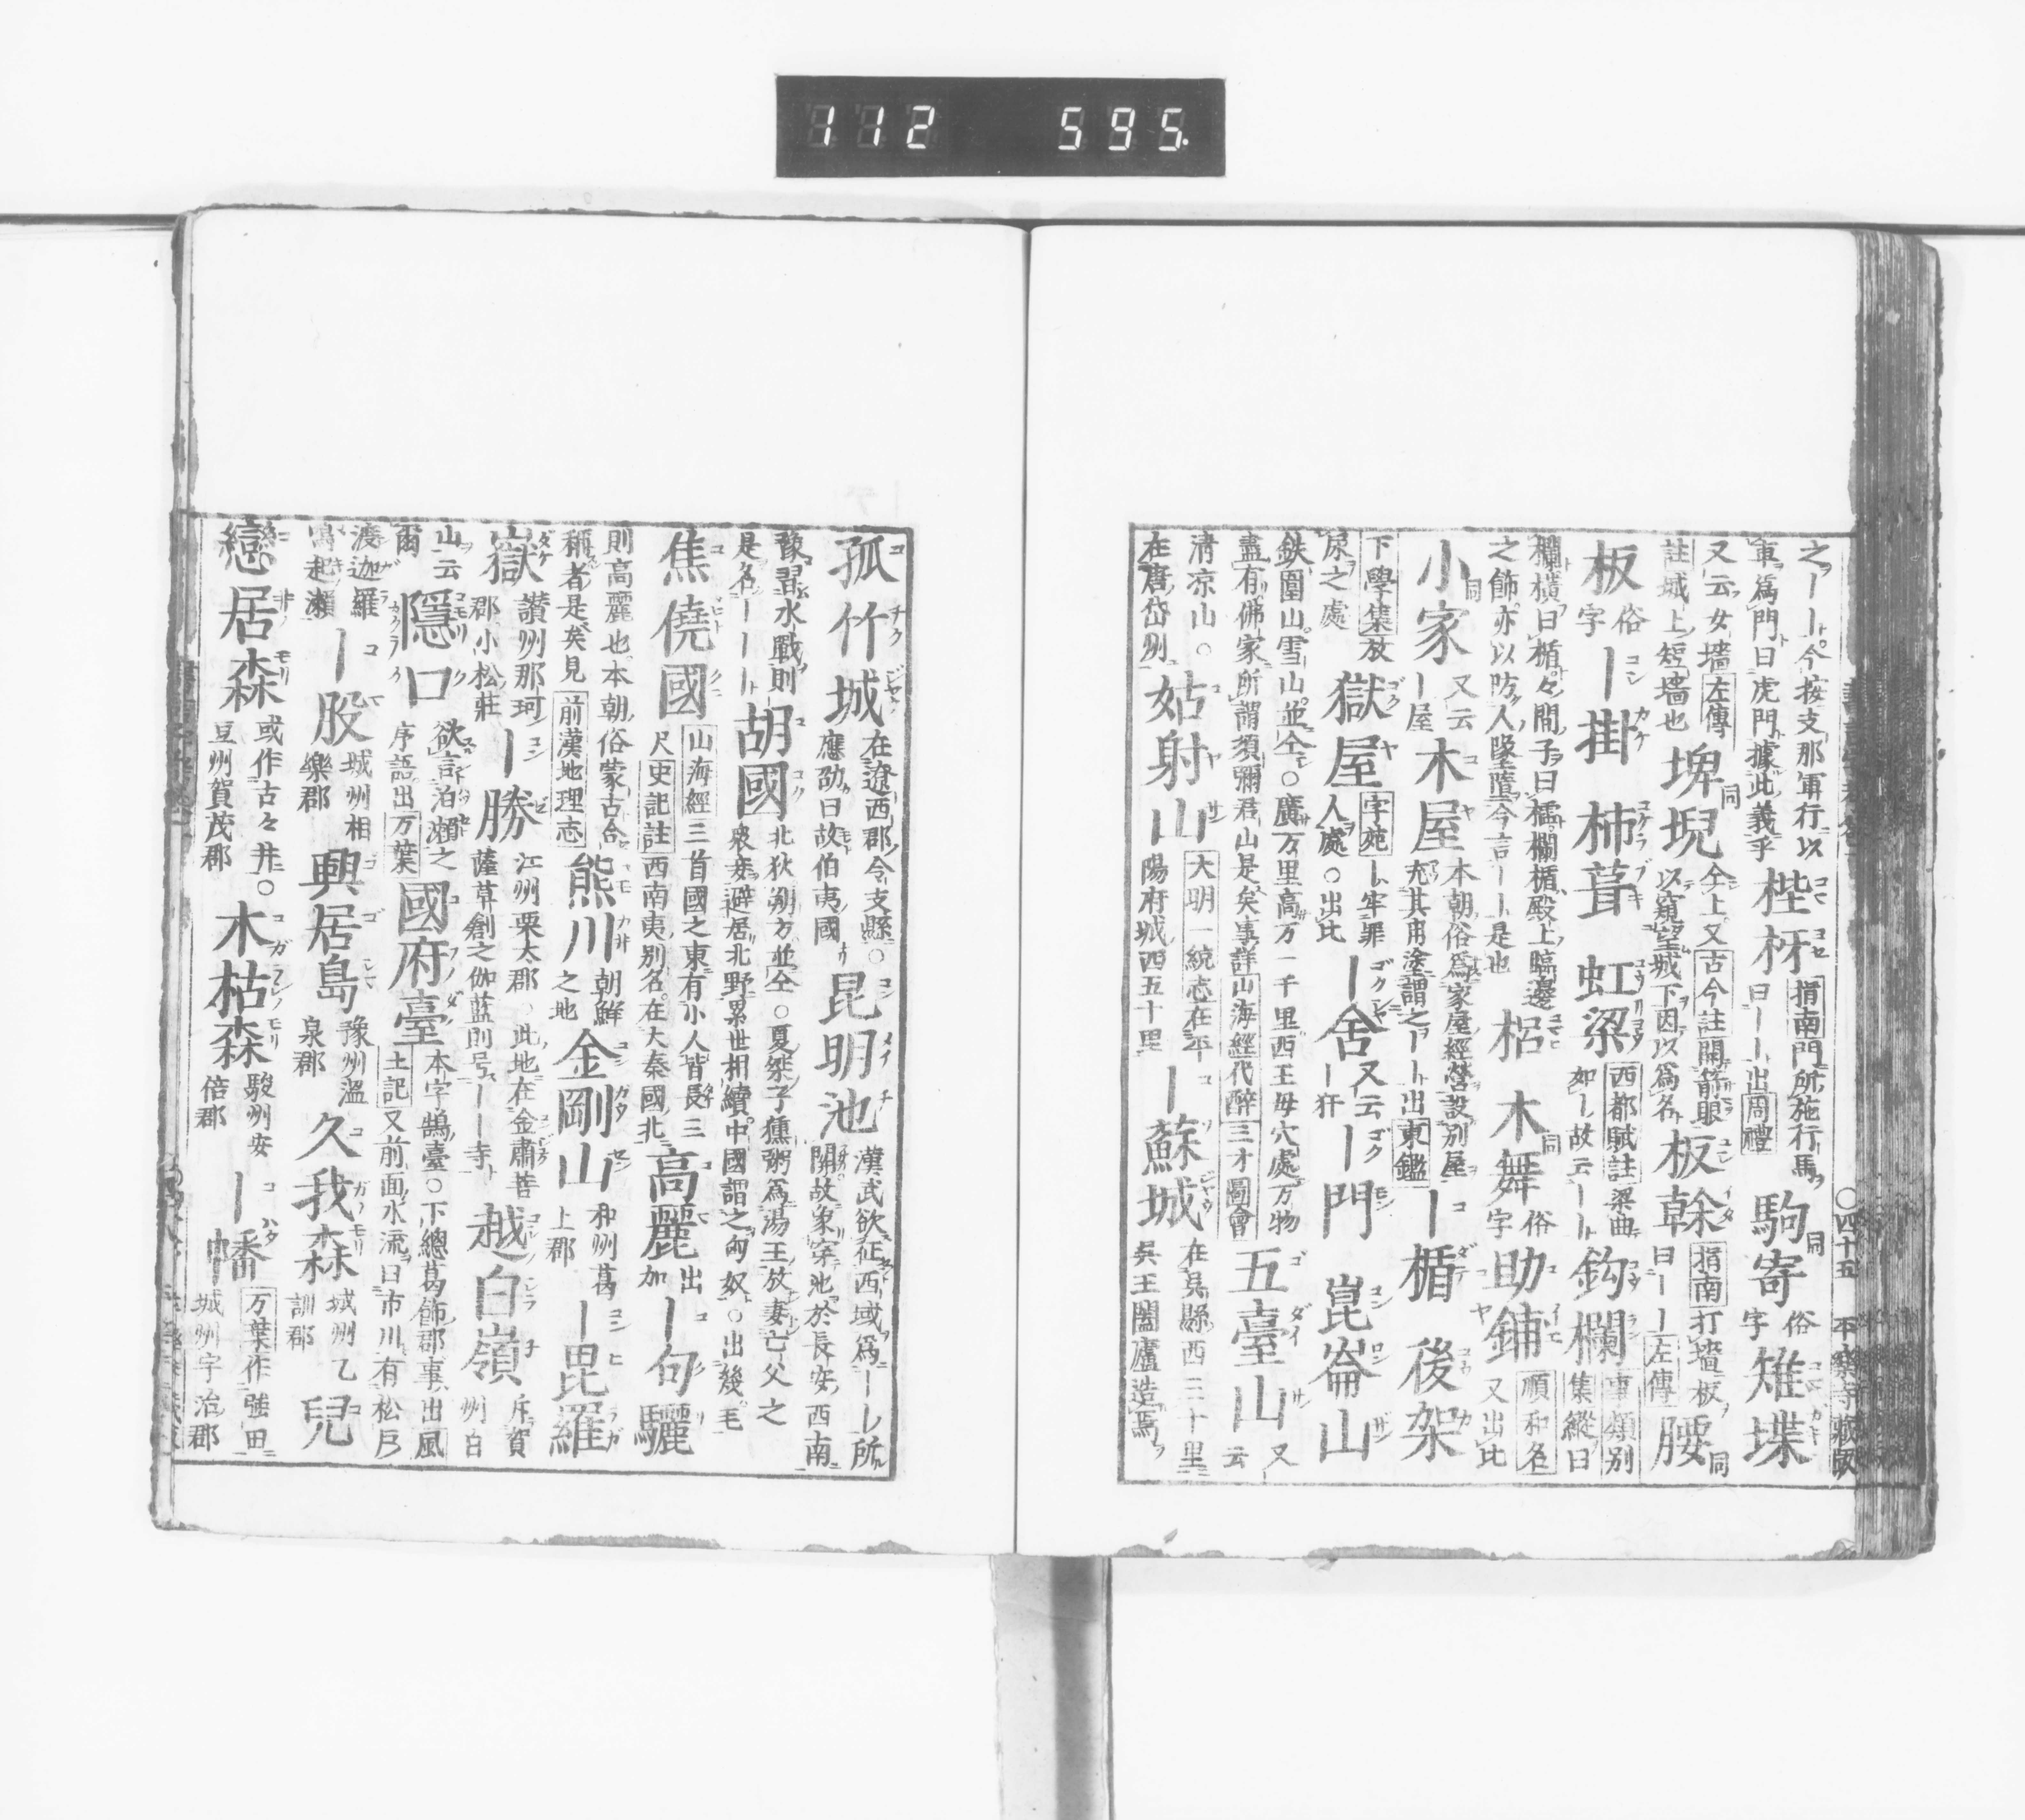 112 595.
之ーー今按支那軍行以
軍爲門曰虎門據此義乎
梐枑
指南門所施行馬
曰ーー出周禮
駒寄
同
俗字
雉堞
又云女墻左傳
註城上短墻也
埤堄
同
仝上又古今註開箭眼
以窺望城下因以爲名
板榦
指南打墻板
曰ーー左傳
腰
同
板
俗字
ー掛
柿葺
虹梁
西都賦註梁曲
如ー故云ーー
鈎欄
事類別
集縱曰
欄橫曰楯々間子曰櫺欄楯殿上臨邊
之飾亦以防人墜墮今言ーー是也
梠
木舞
同
俗字
助鋪
順和名
又出比
小家
同
又云
ー屋
木屋
本朝俗爲家屋經營設別屋
充其用塗謂之ーー出東鑑
ー楯
後架
下學集放
尿之處
獄屋
字苑ー牢罪
人處○出比
ー舍
又云
ー犴
ー門
崑崙山
鉄圍山雪山並仝○廣万里高万一千里西王毋穴處万物
盡有佛家所謂須彌君山是矣事詳山海經代醉三才圖會
五臺山
又云
清凉山○
在唐岱州
姑射山
大明一統志在平
陽府城西五十里
ー蘇城
在吳縣西三十里
吳王闔廬造焉
○四十五
孤竹城
在遼西郡令支縣○
應劭曰故伯夷國
昆明池
漢武欲征西域爲ーー所
閉故象穿池於長安西南
豫習水戰則
是名ーーー
胡國
北狄朔方並仝○夏桀子獯粥爲湯王放妻亡父之
衆妾避居北野累世相續中國謂之匈奴○出幾毛
焦僥國
山海經三首國之東有小人皆長三
尺史記註西南夷別名在大秦國北
高麗
出加
ー句驪
則高麗也本朝俗蒙古合
稱者是矣見前漢地理志
熊川
朝鮮之地
金剛山
和州葛
上郡
ー毘羅
嶽
讃州那珂
郡小松莊
ー勝
江州栗太郡○此地在金肅菩
薩草創之伽藍則号ーー寺
越白嶺
斥賀
州白
山云
爾
隱口
欲言泊瀬之
序語出万葉
國府臺
本字鵠臺○下總葛飾郡事出風
土記又前面水流曰市川有松戸
渡迦羅
鳴起瀬
ー股
城州相
樂郡
興居島
豫州溫
泉郡
久我森
城州乙
訓郡
兒
戀居森
或作古々井○
豆州賀茂郡
木枯森
駿州安
倍郡
ー幡
万葉作強田
城州宇治郡